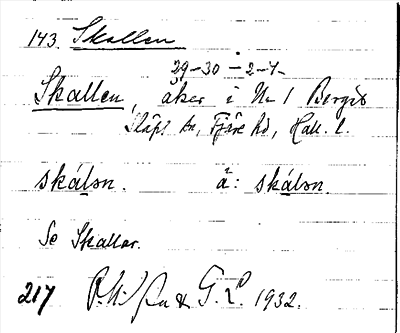 143. Skallen
29-30-2-4-
Skallen, åker i Nr 1 Berget
Släps sn, Fjäre hd, Hall. l.
skálən. å: skálən.
Se Skallar.
217 G. L. 1932.